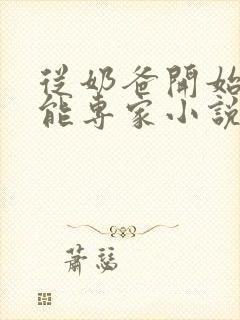 從奶爸開始
能專家小說
蕭瑟